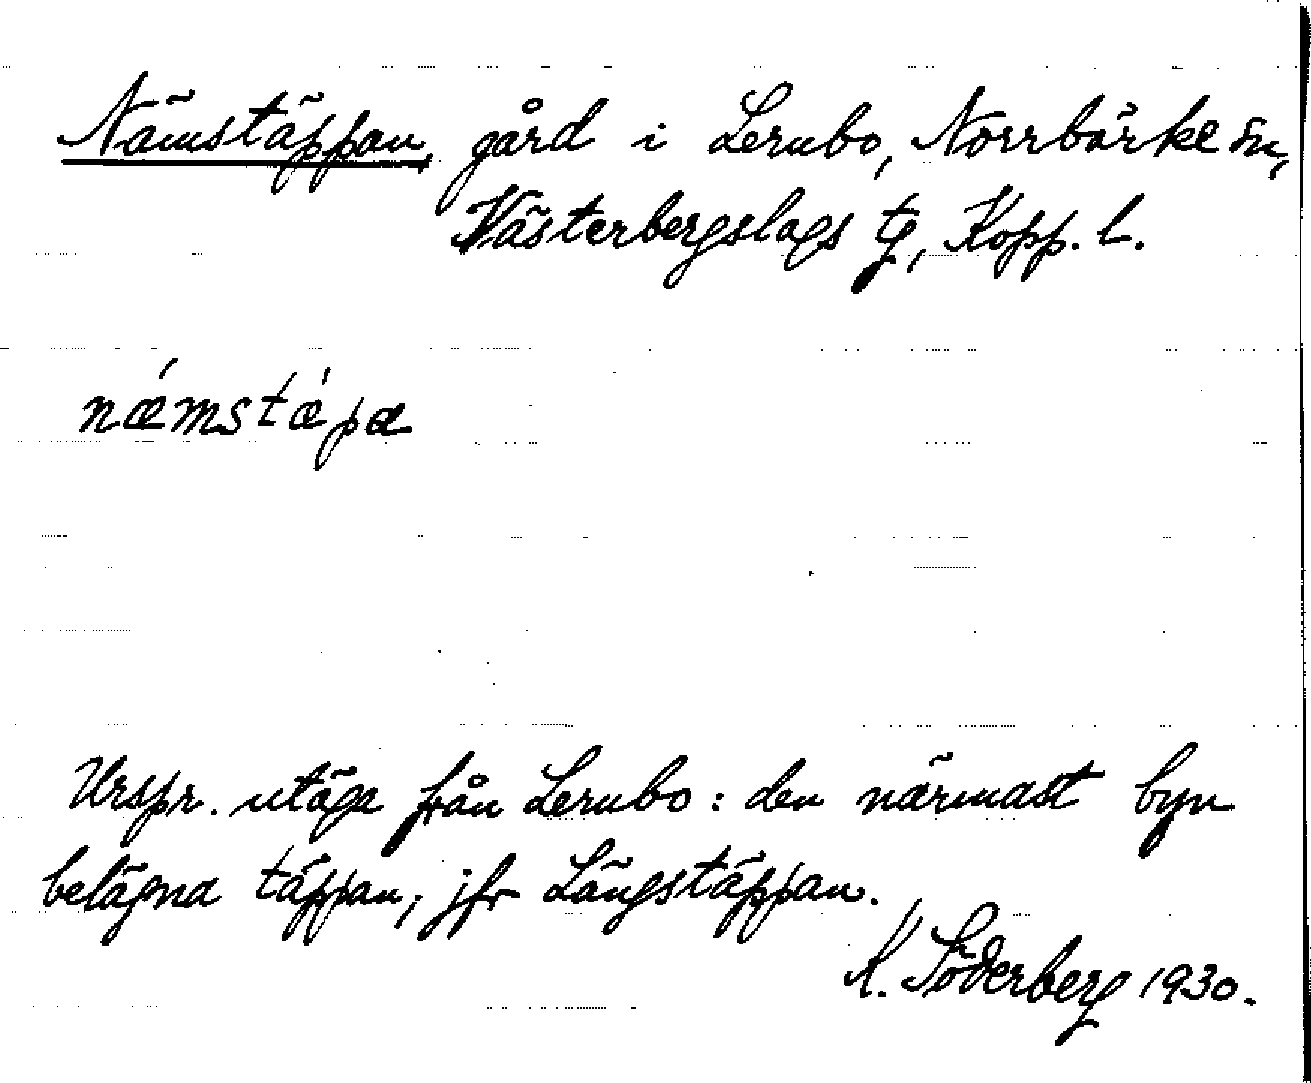 Nämstäppan, gård i Lernbo, Norrbärke sn,
Västerbergslags tg, Kopp. l.
næ´mstæ`pa
Urspr. utäga från Lernbo: den närmast byn
belägna täppan, jfr Längstäppan.
K. Söderberg 1930.